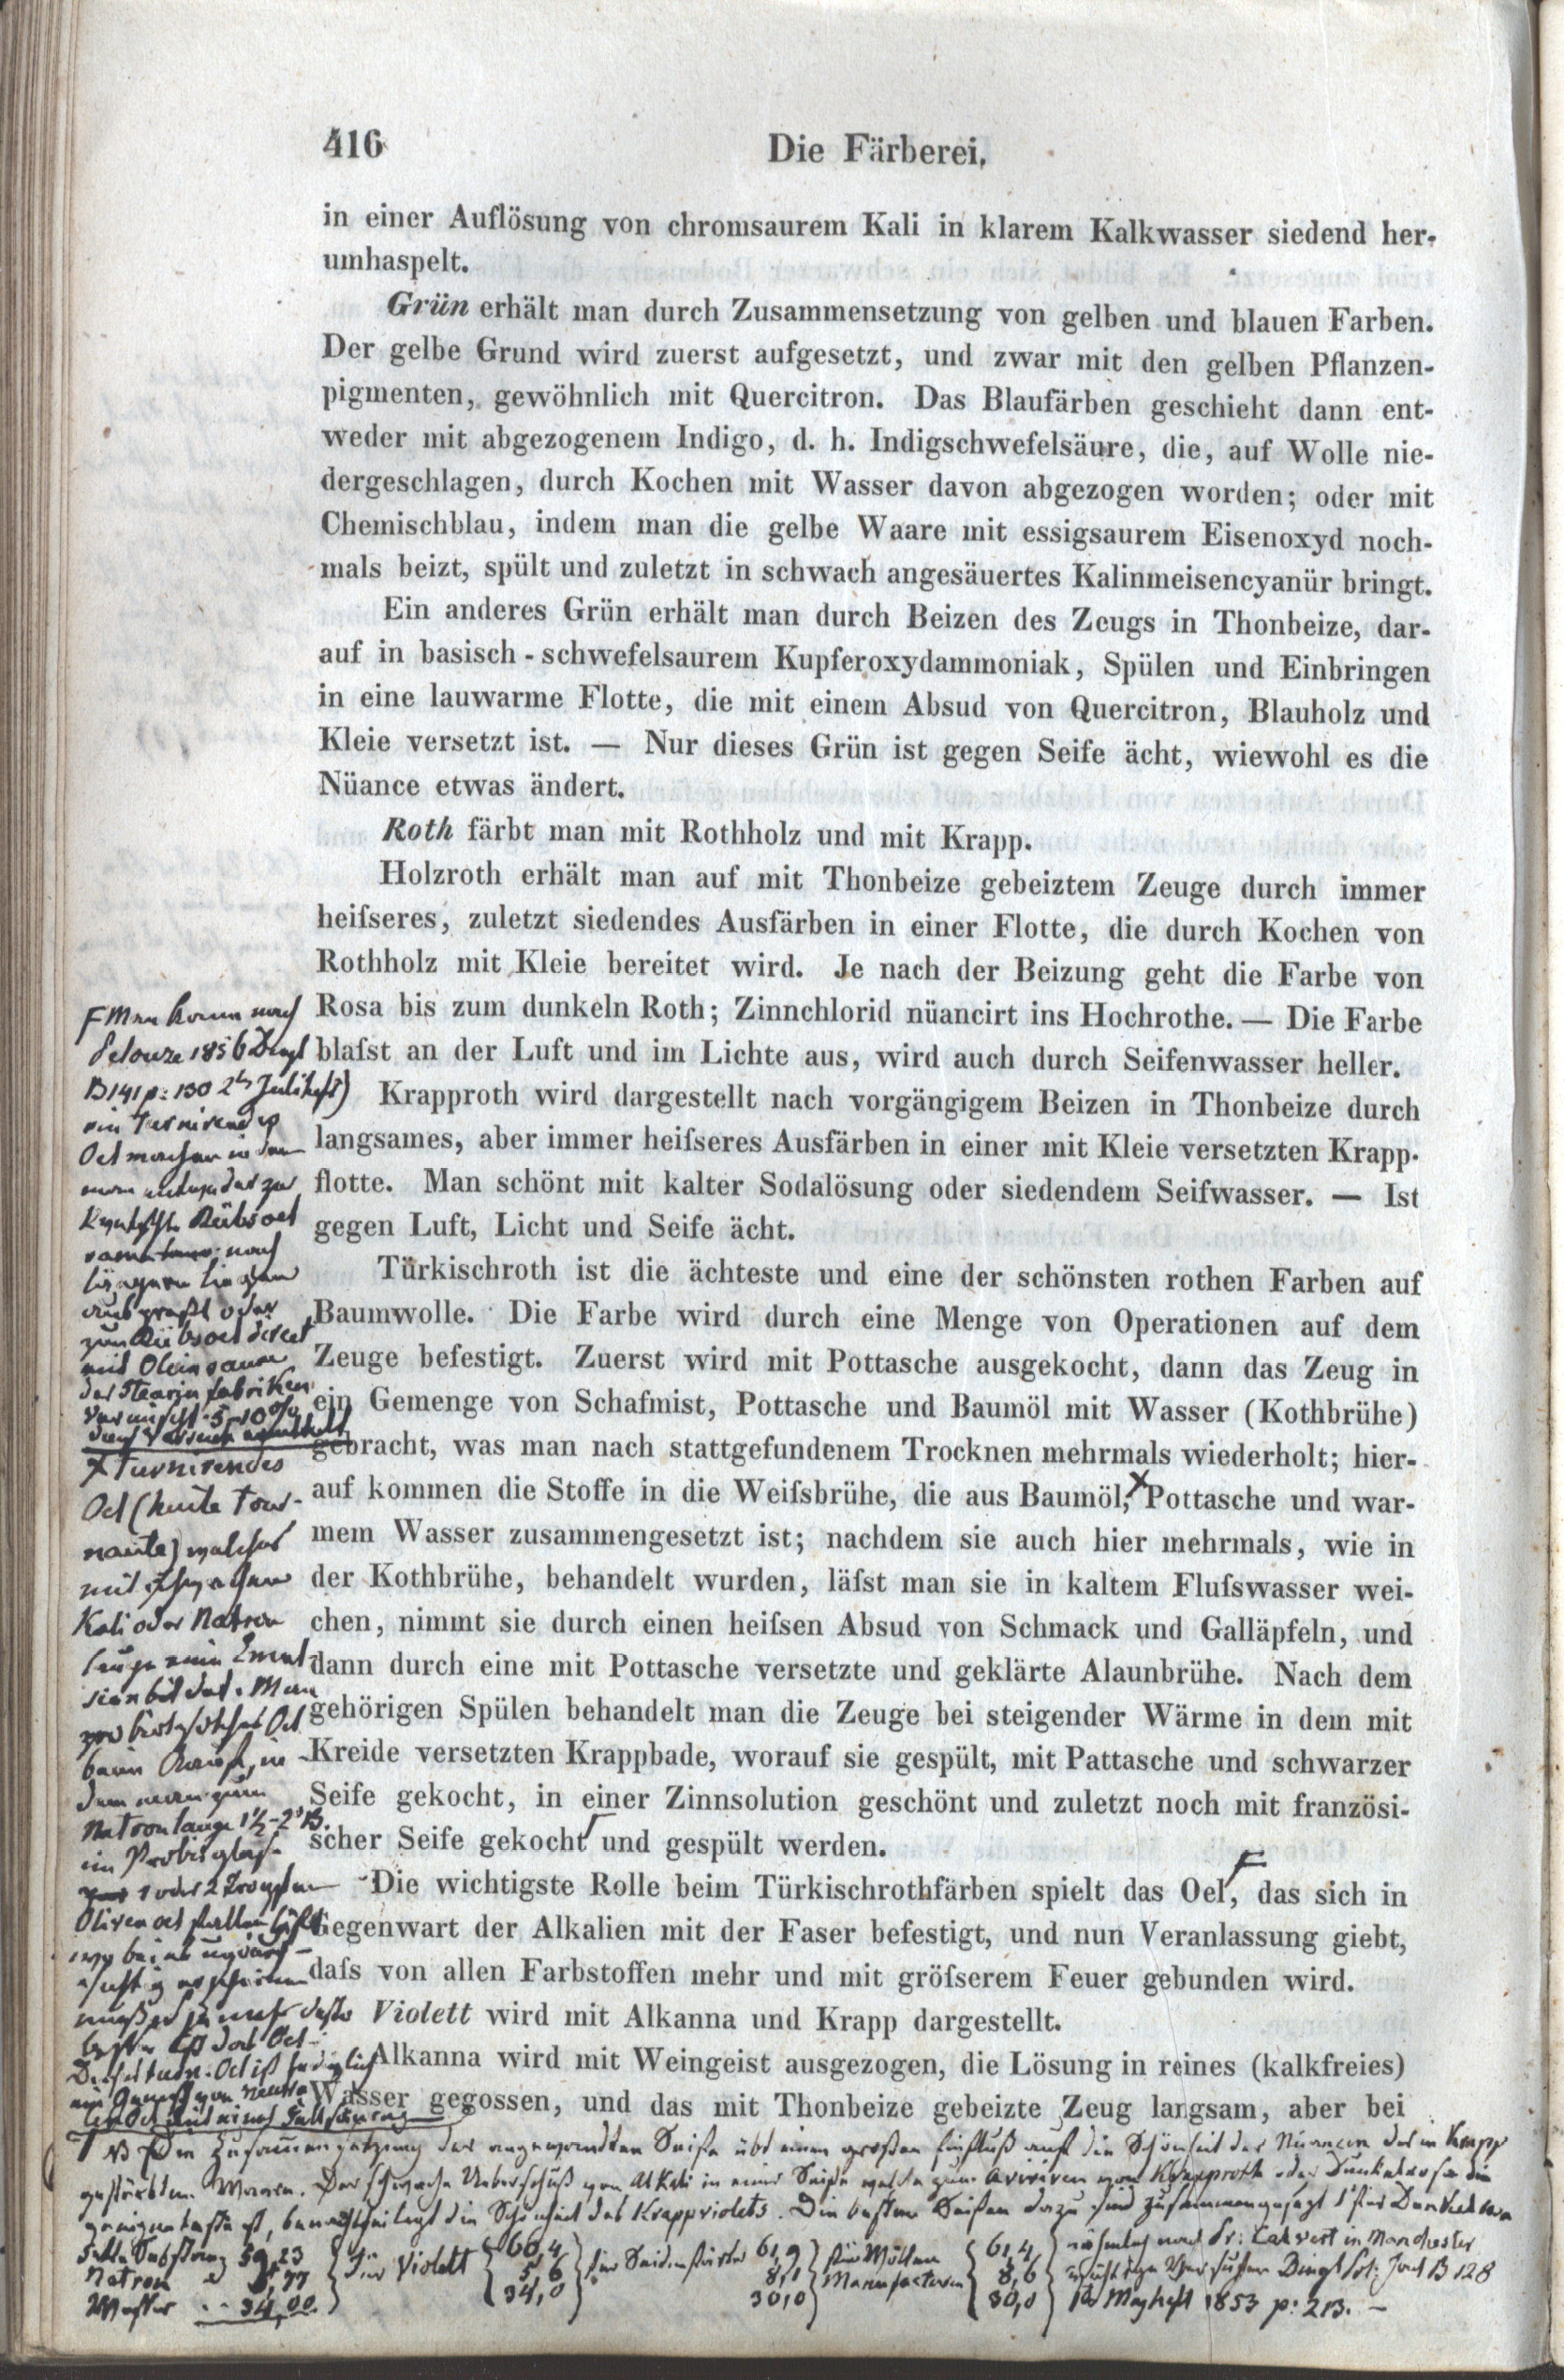 416
Die Färberei.
in einer Auflösung von chromsaurem Kali in klarem Kalkwasser siedend her-
umhaspelt.
Grün erhält man durch Zusammensetzung von gelben und blauen Farben.
Der gelbe Grund wird zuerst aufgesetzt, und zwar mit den gelben Pflanzen-
pigmenten, gewöhnlich mit Quercitron. Das Blaufärben geschieht dann ent-
weder mit abgezogenem Indigo, d. h. Indigschwefelsäure, die, auf Wolle nie-
dergeschlagen, durch Kochen mit Wasser davon abgezogen worden; oder mit
Chemischblau, indem man die gelbe Waare mit essigsaurem Eisenoxyd noch-
mals beizt, spült und zuletzt in schwach angesäuertes Kalinmeisencyanür bringt.
Ein anderes Grün erhält man durch Beizen des Zeugs in Thonbeize, dar-
auf in basisch-schwefelsaurem Kupferoxydammoniak, Spülen und Einbringen
in eine lauwarme Flotte, die mit einem Absud von Quercitron, Blauholz und
Kleie versetzt ist. — Nur dieses Grün ist gegen Seife ächt, wiewohl es die
Nüance etwas ändert.
Roth färbt man mit Rothholz und mit Krapp.
Holzroth erhält man auf mit Thonbeize gebeiztem Zeuge durch immer
heifseres, zuletzt siedendes Ausfärben in einer Flotte, die durch Kochen von
Rothholz mit Kleie bereitet wird. Je nach der Beizung geht die Farbe von
Rosa bis zum dunkeln Roth; Zinnchlorid nüancirt ins Hochrothe. — Die Farbe
blafst an der Luft und im Lichte aus, wird auch durch Seifenwasser heller.
Krapproth wird dargestellt nach vorgängigem Beizen in Thonbeize durch
langsames, aber immer heifseres Ausfärben in einer mit Kleie versetzten Krapp-
flotte. Man schönt mit kalter Sodalösung oder siedendem Seifwasser. — Ist
gegen Luft, Licht und Seife ächt.
Türkischroth ist die ächteste und eine der schönsten rothen Farben auf
Baumwolle. Die Farbe wird durch eine Menge von Operationen auf dem
Zeuge befestigt. Zuerst wird mit Pottasche ausgekocht, dann das Zeug in
ein Gemenge von Schafmist, Pottasche und Baumöl mit Wasser (Kothbrühe)
gebracht, was man nach stattgefundenem Trocknen mehrmals wiederholt; hier-
auf kommen die Stoffe in die Weifsbrühe, die aus Baumöl, Pottasche und war-
mem Wasser zusammengesetzt ist; nachdem sie auch hier mehrmals, wie in
der Kothbrühe, behandelt wurden, läfst man sie in kaltem Flufswasser wei-
chen, nimmt sie durch einen heifsen Absud von Schmack und Galläpfeln, und
dann durch eine mit Pottasche versetzte und geklärte Alaunbrühe. Nach dem
gehörigen Spülen behandelt man die Zeuge bei steigender Wärme in dem mit
Kreide versetzten Krappbade, worauf sie gespült, mit Pattasche und schwarzer
Seife gekocht, in einer Zinnsolution geschönt und zuletzt noch mit französi-
scher Seife gekocht und gespült werden.
Die wichtigste Rolle beim Türkischrothfärben spielt das Oel, das sich in
Gegenwart der Alkalien mit der Faser befestigt, und nun Veranlassung giebt,
dafs von allen Farbstoffen mehr und mit gröfserem Feuer gebunden wird.
Violett wird mit Alkanna und Krapp dargestellt.
Alkanna wird mit Weingeist ausgezogen, die Lösung in reines (kalkfreies)
Wasser gegossen, und das mit Thonbeize gebeizte Zeug langsam, aber bei
Man kann nach
Pelouze 1856 Dingl
B 141 p: 130 2tes Juliheft)
ein turnirendes
Oel machen indem
man entweder zer
Rübsoel
nach
längerem liegen
auspreßt oder
zum Rübsoel direct
mit Oleinsaure
der Stearinfabriken
vermischt 5-10%
Turnirendes
Oel (huile tour-
nante) welches
mit schwacher
Kali oder Natron
lauge eine Emul-
sion bildet. Man
probirt solches Oel
beim Kauf, in
dem man zum
Natronlauge 1½-2° B.
im Probirglas
1 oder 2 Tropfen
Olivenoel fallen läßt
wobei es undurch-
sichtig erscheinen
muß je mehr desto
besser ist das Oel
Dieses turn. Oel ist lediglich
ein Gemisch von neutra
lem Oel mit einer Fettsäure
NB Die Zusammensetzung der angewandten Seife übt einen großen Einfluß auf die Schönheit der Nüancen der in Krapp
gefärbten Waaren. Der schwache Ueberschuß von Alkali in einer Seife welche zum Aviviren von Krapproth oder Dunkelrosa die
geeigneteste ist, benachtheiligt die Schönheit des Krappviolets. Die besten Seifen dazu sind zusammengesezt 1° für Dunkelrosa
Fette Substanz 59,23 für Violett 60,4 für Seidenfärber 61,9 für Wollen 61,4 nach Fr: Calvert in Manchester
Natron 6,77 5,6 8,1 Manufacturen 8,6 Versuchen Dingl Pol: Jour B 128
Wasser 34,00 34,0 30,0 30,0 Mayheft 1853 p: 213. —